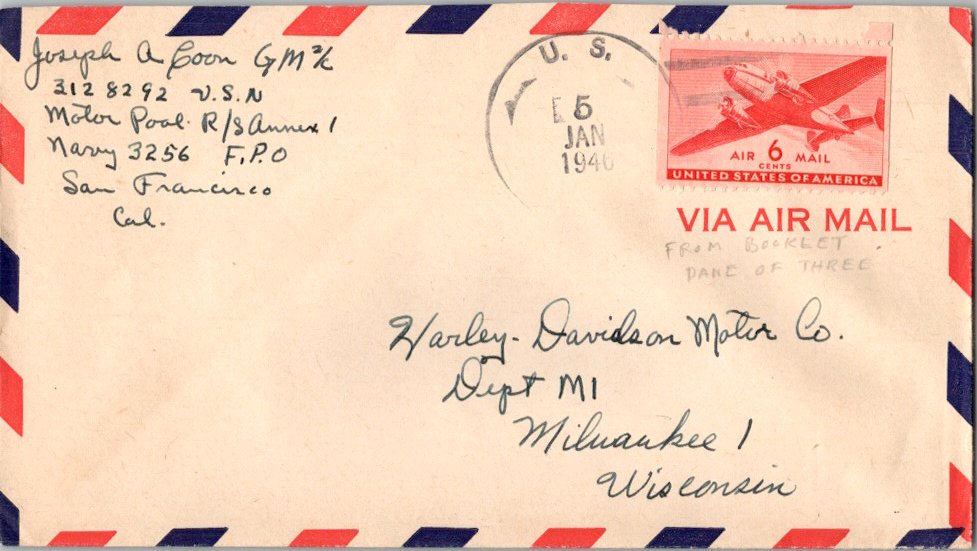 Joseph A Coon GM 2/c
312 82 92 U.S.N
Motor Pool R/S Annex 1
Navy 3256 F.P.O
San Francisco
Cal.
U. S.
5
JAN
1946
AIR 6 MAIL
CENTS
UNITED STATES OF AMERICA
VIA AIR MAIL
FROM BOOKLET
PANE OF THREE
Harley-Davidson Motor Co.
Dept M1
Milwaukee 1
Wisconsin